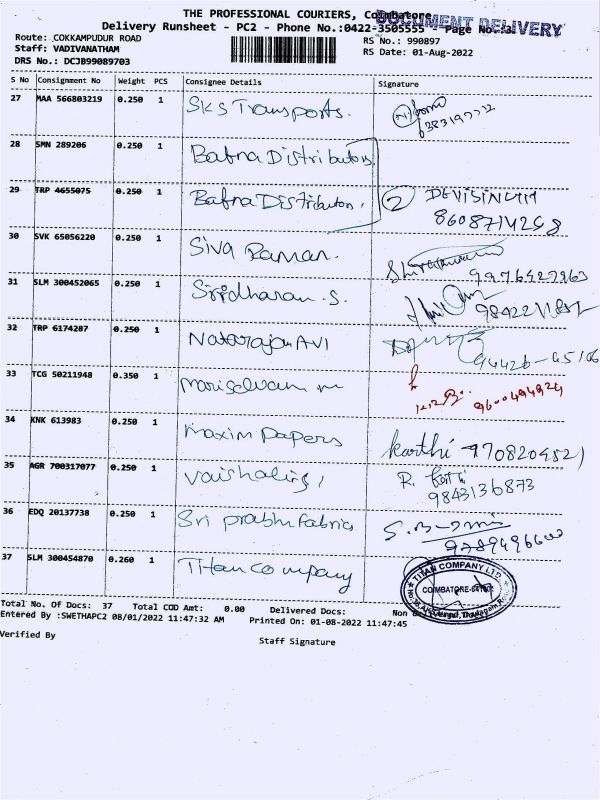 THE PROFESSIONAL COURIERS, Coimbatore
DOCUMENT DELIVERY
Delivery Runsheet - PC2 - Phone No.:0422-3505555 - Page No.:3
Route: COKKAMPUDUR ROAD
RS No.: 990897
Staff: VADIVANATHAM
RS Date: 01-Aug-2022
DRS No.: DCJB99089703
S No Consignment No Weight PCS Consignee Details Signature
27 MAA 566803219 0.250 1 SKS Transports.
28 SMN 289206 0.250 1 Bafna Distributors
29 TRP 4655075 0.250 1 Bafna Distributors. 2 DEVISINGH
8608714268
30 SVK 65056220 0.250 1 Siva Raman.
9976427963
31 SLM 300452065 0.250 1 Sridharan. S.
32 TRP 6174287 0.250 1 Natarajan AVI
33 TCG 50211948 0.350 1 Mariselvam m
34 KNK 613983 0.250 1 Maxim Papers Karthi
35 AGR 700317077 0.250 1 R.
9843136873
36 EDQ 20137738 0.250 1 Sri prabhu fabrics
37 SLM 300454870 0.260 1 Titan company
TITAN COMPANY LTD.
COIMBATORE
Total No. Of Docs: 37 Total COD Amt: 0.00 Delivered Docs: Non
Entered By :SWETHAPC2 08/01/2022 11:47:32 AM Printed On: 01-08-2022 11:47:45
Verified By
Staff Signature